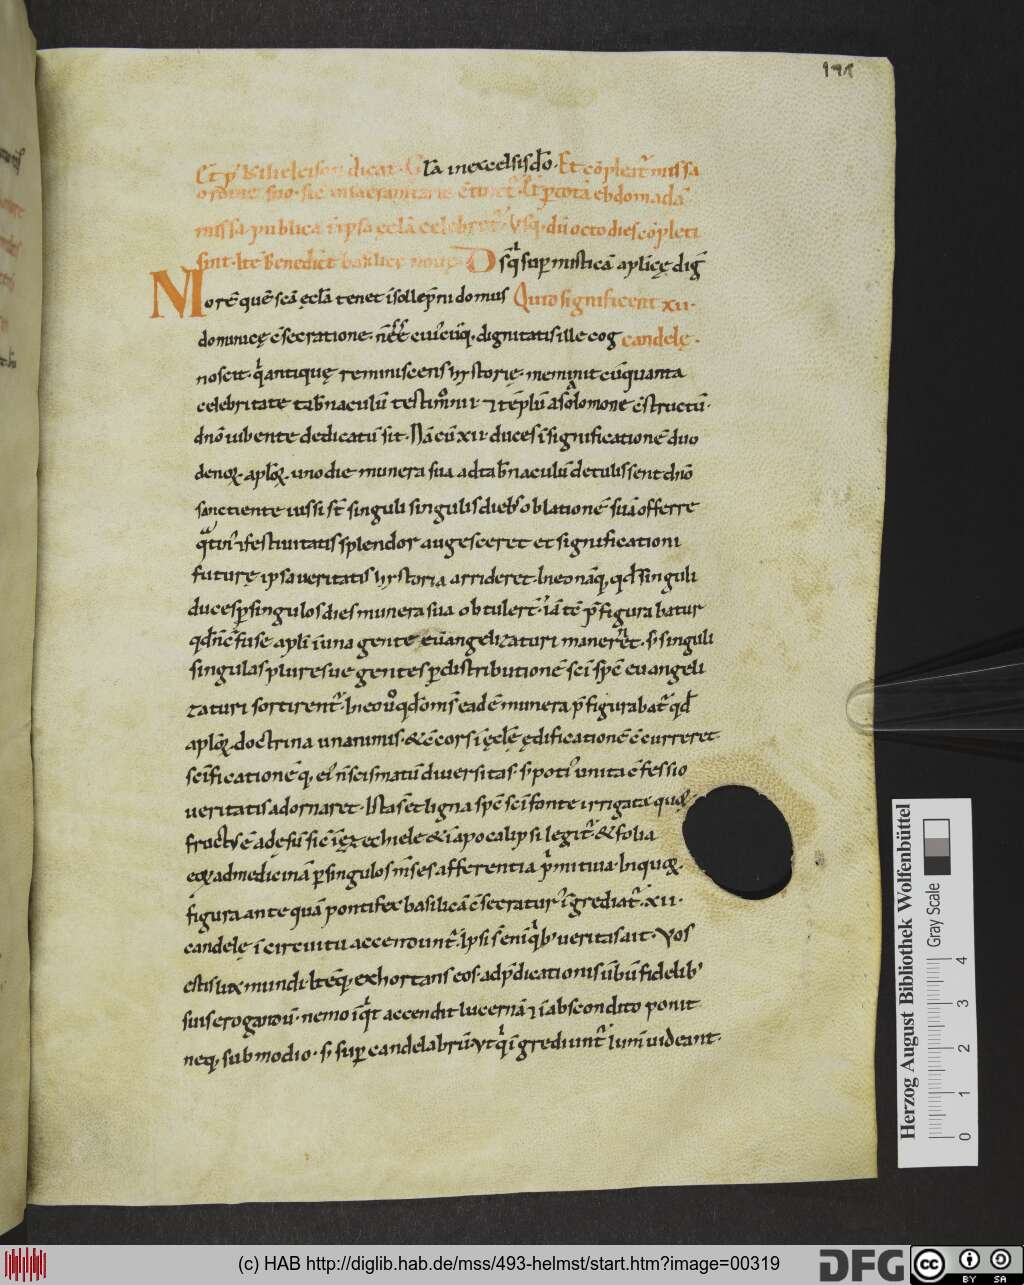 Et p᷒ kyrieleison dicat· Gła in excelsis dō· Et cōpleat᷒ missa
ordine suo· sic
missa publica i ipsa ęcła celebret᷒· Usq; dū octo dies cōpleti
sint· Ite Benedict basilicę nouę· D s q sup̱ misticā aplicę dig
More quē scā ęcła tenet domus Quid significent xii·
dominicę c̄secratione· cui᷒cūq; dignitatis ille cog candelę·
noscit· q̇ antiquę reminiscens hystorię· meminit cū quanta
celebritate tab̄naculū testimonii ⁊ tēplū a salomone c̄structū·
dn̄o iubente dedicatū sit· Nā cū xii· duces i significationē duo
denoꝝ· aploꝝ· uno die munera sua ad tab̄naculū detulissent dn̄o
sanctiente iussi st̄ singuli singulis dieb; oblationē suā offerre
festiuitatis splendor augesceret et significationi
futurę ipsa ueritatis hystoria arrideret· In eo nāq; qd̄ singuli
duces p̱ singulos dies munera sua obtulert̄· iā tē p̄figurabatur
qd̄ n̄ c̄fuse apłi i una gente euangelizaturi manerēt· s; singuli
singulas plures ue gentes p̱ distributionē sci sp̄c euangeli
zaturi sortirent᷒· In eo u̇ qd̄ om̄s eadē munera p̄figurabat᷒ qd̄
aploꝝ· doctrina unanimis· & c̄cors i ęcłę ędificationē c̄curreret
scīficationēq; ei᷒ n̄ scismatū diuersitas· s; poti᷒ unita c̄fessio
ueritatis adornaret· Ista st̄ ligna sp̄c sci fonte irrigata quoꝝ·
fruct᷒ sic i ęzechiele & i apocalipsi legit᷒· & folia
eoꝝ ad medicinā p̱ singulos m̄ses afferentia p̄mitiua· In quoꝝ·
figura ante quā pontifex basilicā c̄secratur᷒ īgrediat᷒· xii·
candelę i circuitu accendunt᷒· Ipsi s̄ eni quib; ueritas ait· Vos
estis lux mundi· Itēq; exhortans eos· ad p̄dicationis ūbū fidelib;
suis erogandū· nemo inq̇t accendit lucernā ⁊ i abscondito ponit
neq; sub modio· s; sup̱ candelabrū· ut q̇ īgrediunt᷒ lum̄ uideant·
Herzog August Bibliothek Wolfenbüttel
Gray Scale
0 1 2 3 4
(c) HAB http://diglib.hab.de/mss/493-helmst/start.htm?image=00319
DFG
cc BY SA